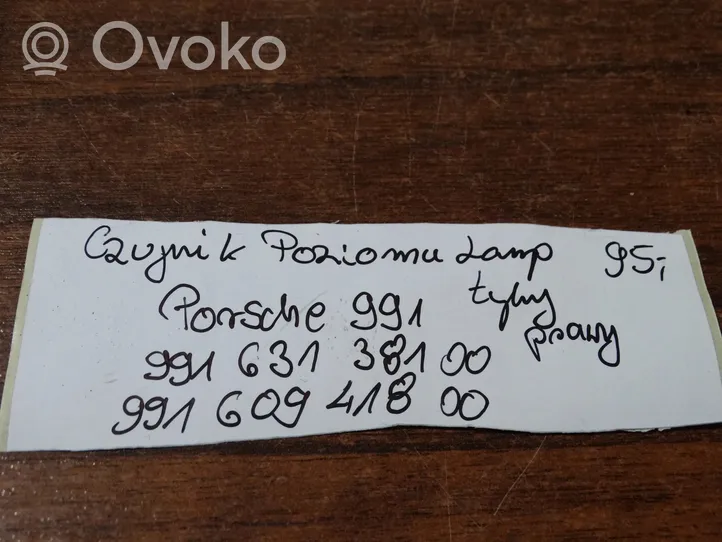 Ovoko
Czujnik Poziomu Lamp 95,-
Porsche 991 tylny
991 631 381 00 prawy
991 609 418 00